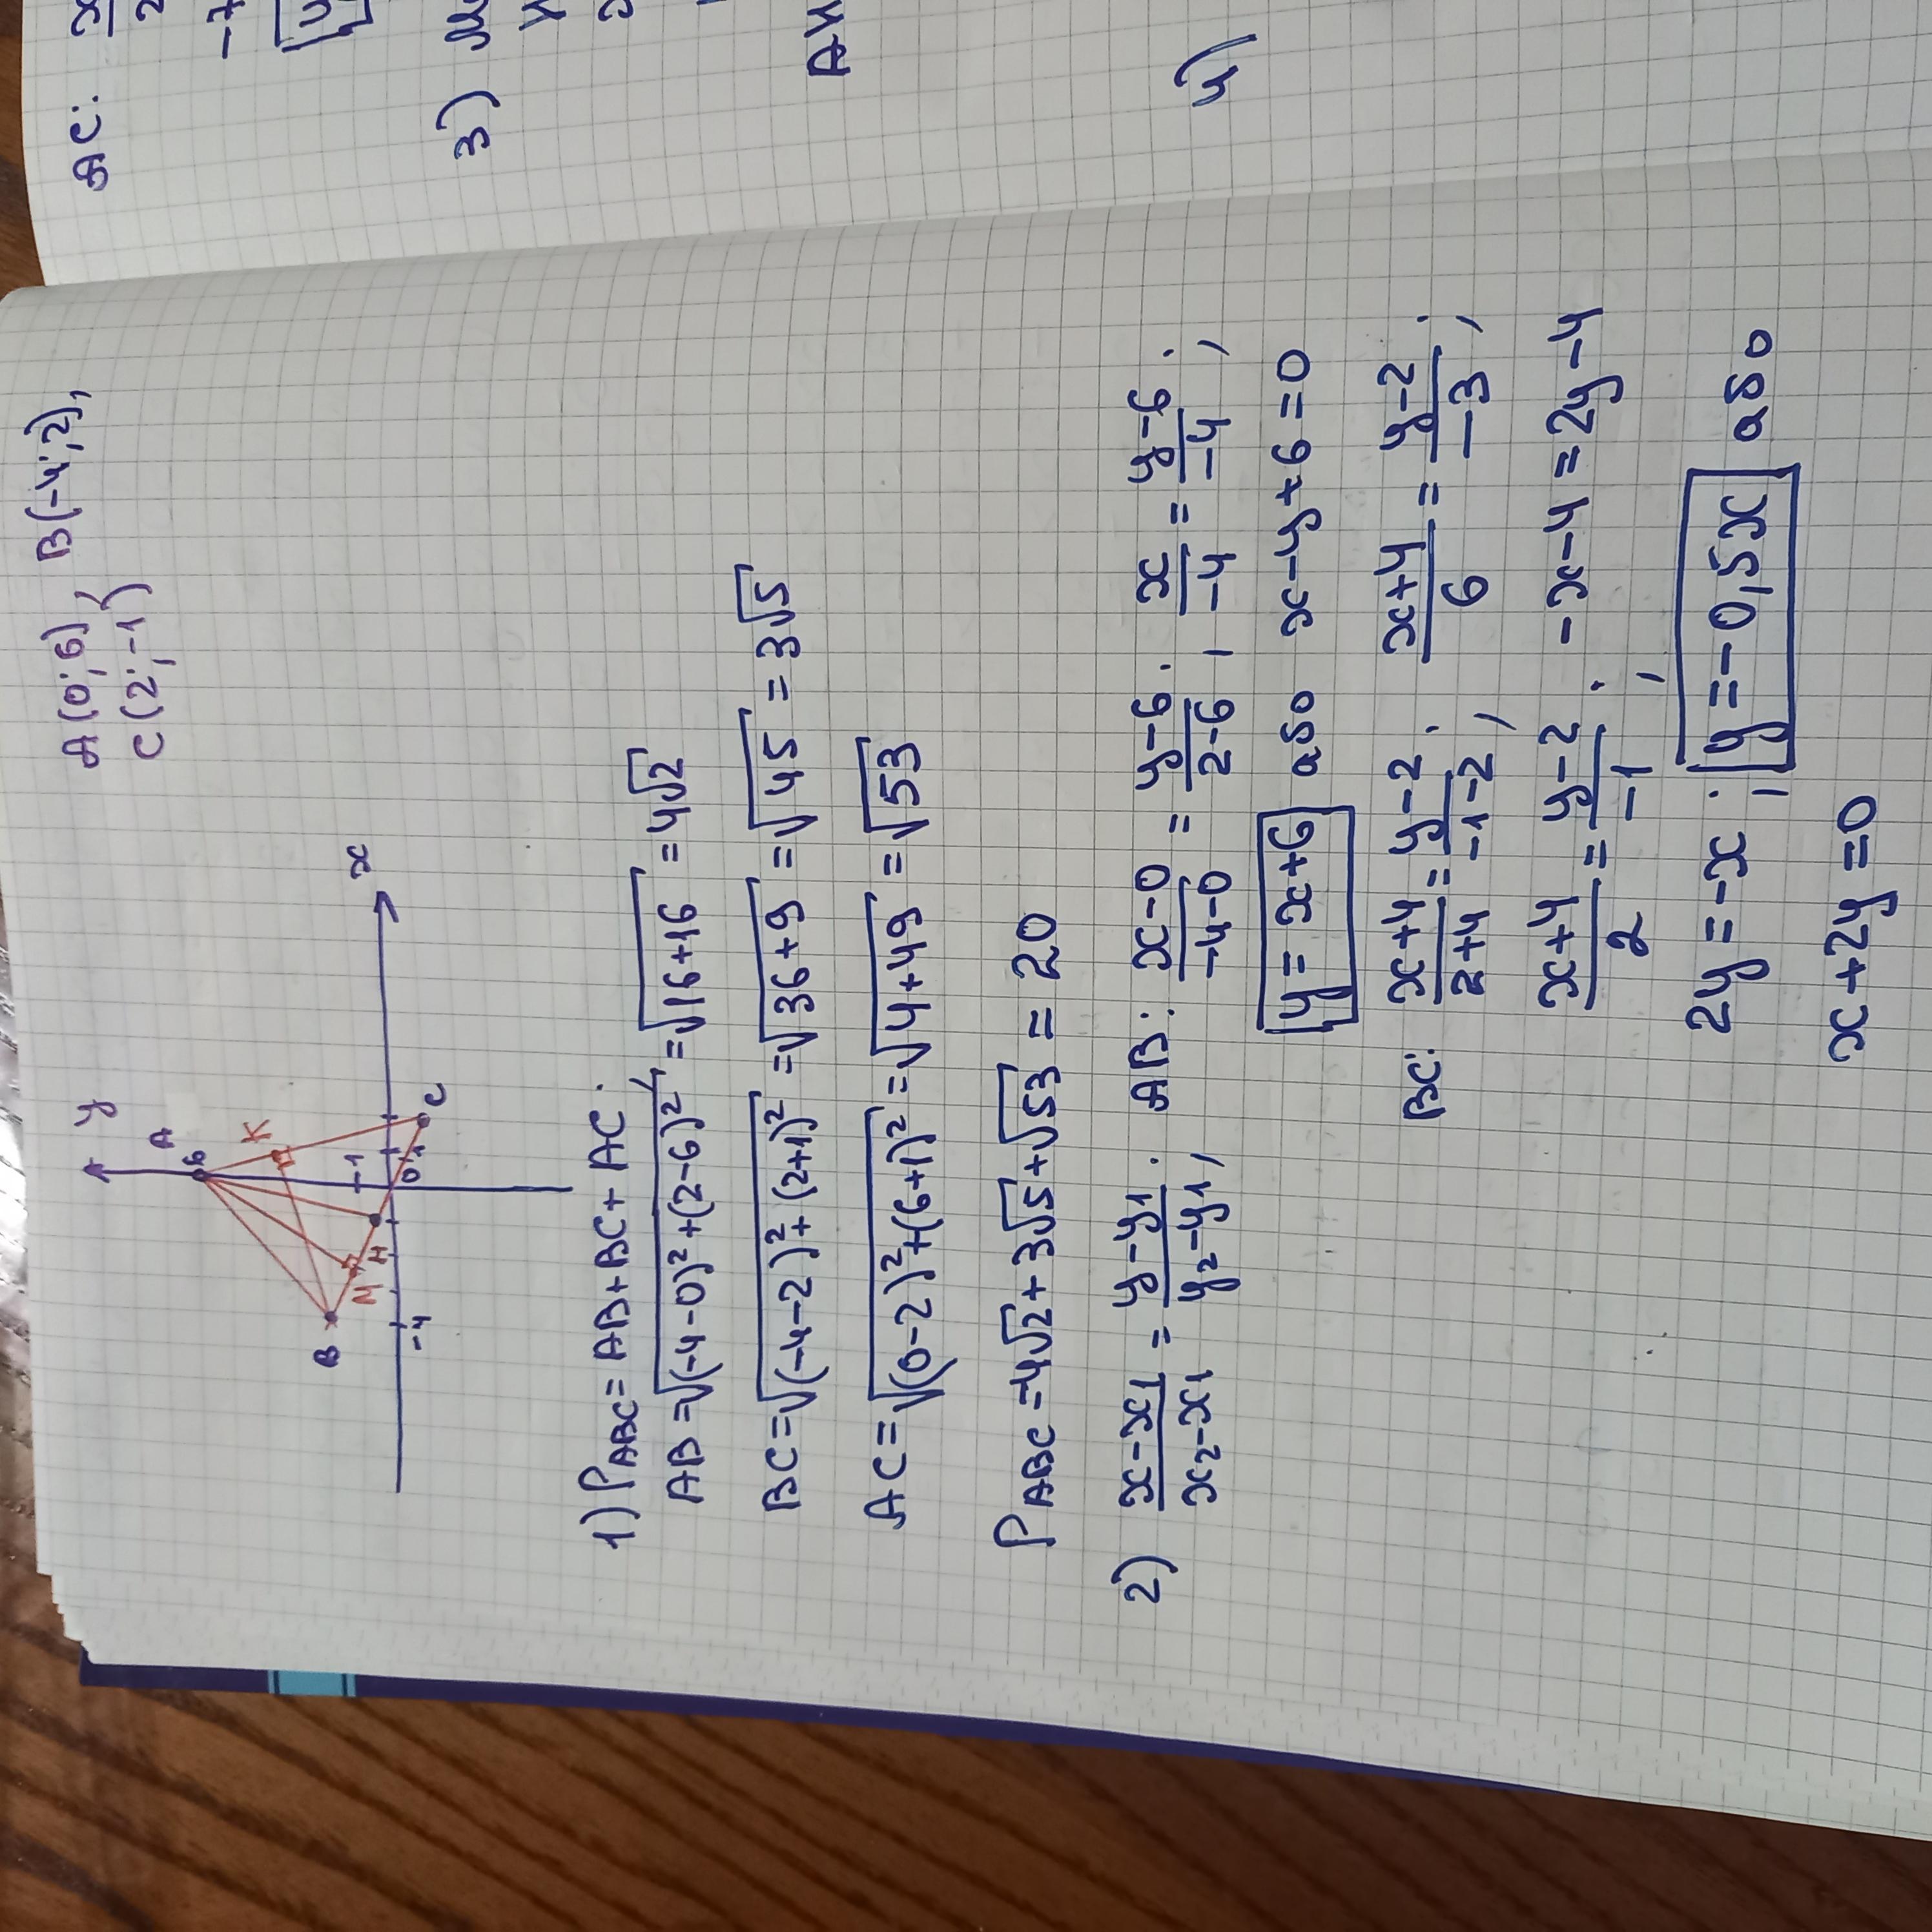 A(0;6), B(-4;2),
C(2;-1)
y
A
6
K
B
M
H
1
0
1
C
-4
x
1) P_ABC = AB+BC+AC.
AB = √((-4-0)²+(2-6)²) = √(16+16) = 4√2
BC = √((-4-2)²+(2+1)²) = √(36+9) = √45 = 3√5
AC = √((0-2)²+(6+1)²) = √(4+49) = √53
P_ABC = 4√2+3√5+√53 = 20
2) (x-x₁)/(x₂-x₁) = (y-y₁)/(y₂-y₁); AB: (x-0)/(-4-0) = (y-6)/(2-6); x/-4 = (y-6)/-4;
y = x+6 або x-y+6=0
BC: (x+4)/(2+4) = (y-2)/(-1-2); (x+4)/6 = (y-2)/-3;
(x+4)/2 = (y-2)/-1; -x-4=2y-4
2y=-x; y=-0,5x або
x+2y=0
AC:
-7
3)
4)